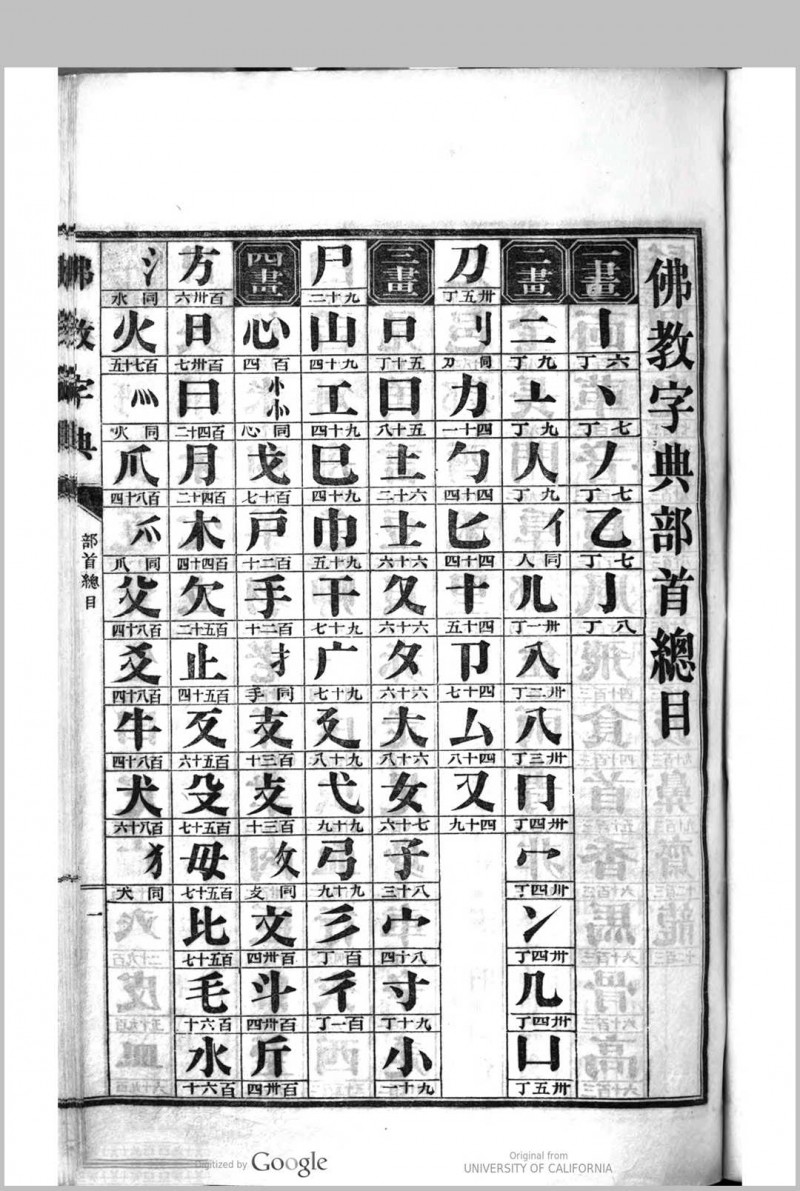 佛教字典部首總目
一畫
丨 六丁
丶 七丁
丿 七丁
乙 七丁
亅 八丁
二畫
二 九丁
亠 九丁
人 九丁
亻 同人
儿 卅一丁
入 卅二丁
八 卅三丁
冂 卅四丁
冖 卅四丁
冫 卅四丁
几 卅四丁
凵 卅五丁
刀 卅五丁
刂 同刀
力 四十一
勹 四十四
匕 四十四
十 四十五
卩 四十七
厶 四十八
又 四十九
三畫
口 五十丁
囗 五十八
土 六十二
士 六十六
夂 六十六
夕 六十六
大 六十八
女 七十六
子 八十三
宀 八十四
寸 九十丁
小 九十一
尸 九十二
山 九十四
工 九十四
巳 九十四
巾 九十五
干 九十七
广 九十七
廴 九十八
弋 九十九
弓 九十九
彡 百丁
彳 百一丁
四畫
心 百四
忄㣺 同心
戈 百十七
戶 百二十
手 百二十
扌 同手
支 百三十
攴 百三十
攵 同攴
文 百卅四
斗 百卅四
斤 百卅四
方 百卅六
日 百卅七
曰 百四十二
月 百四十二
木 百四十四
欠 百五十二
止 百五十四
歹 百五十六
殳 百五十七
毋 百五十七
比 百五十七
毛 百六十
水 百六十
氵 同水
火 百七十五
灬 同火
爪 百八十四
爫 同爪
父 百八十四
爻 百八十四
牛 百八十四
犬 百八十六
犭 同犬
佛教字典
部首總目
一
Digitized by Google
Original from
UNIVERSITY OF CALIFORNIA